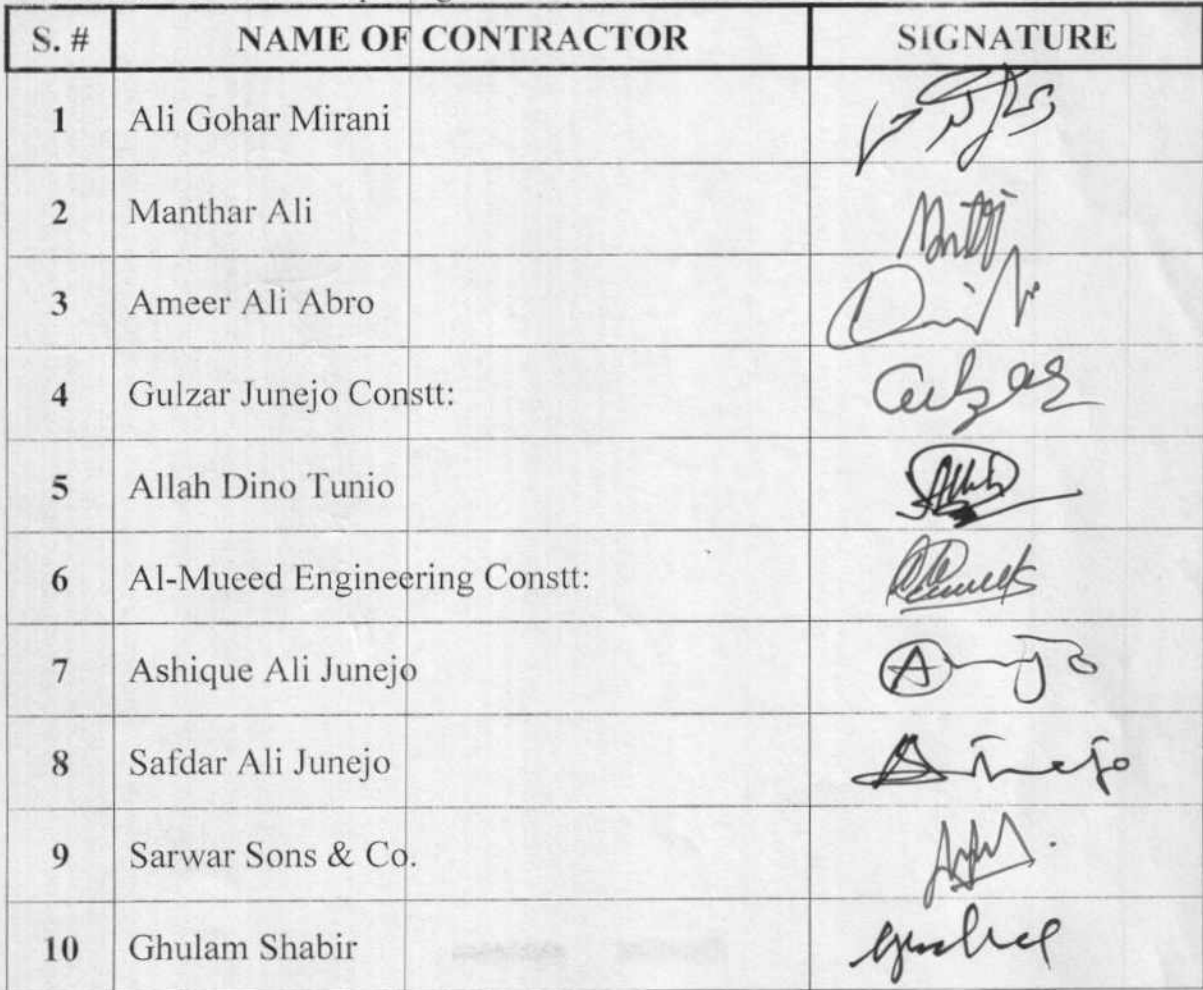 S. # NAME OF CONTRACTOR SIGNATURE
1 Ali Gohar Mirani
2 Manthar Ali
3 Ameer Ali Abro
4 Gulzar Junejo Constt:
5 Allah Dino Tunio
6 Al-Mueed Engineering Constt:
7 Ashique Ali Junejo
8 Safdar Ali Junejo
9 Sarwar Sons & Co.
10 Ghulam Shabir